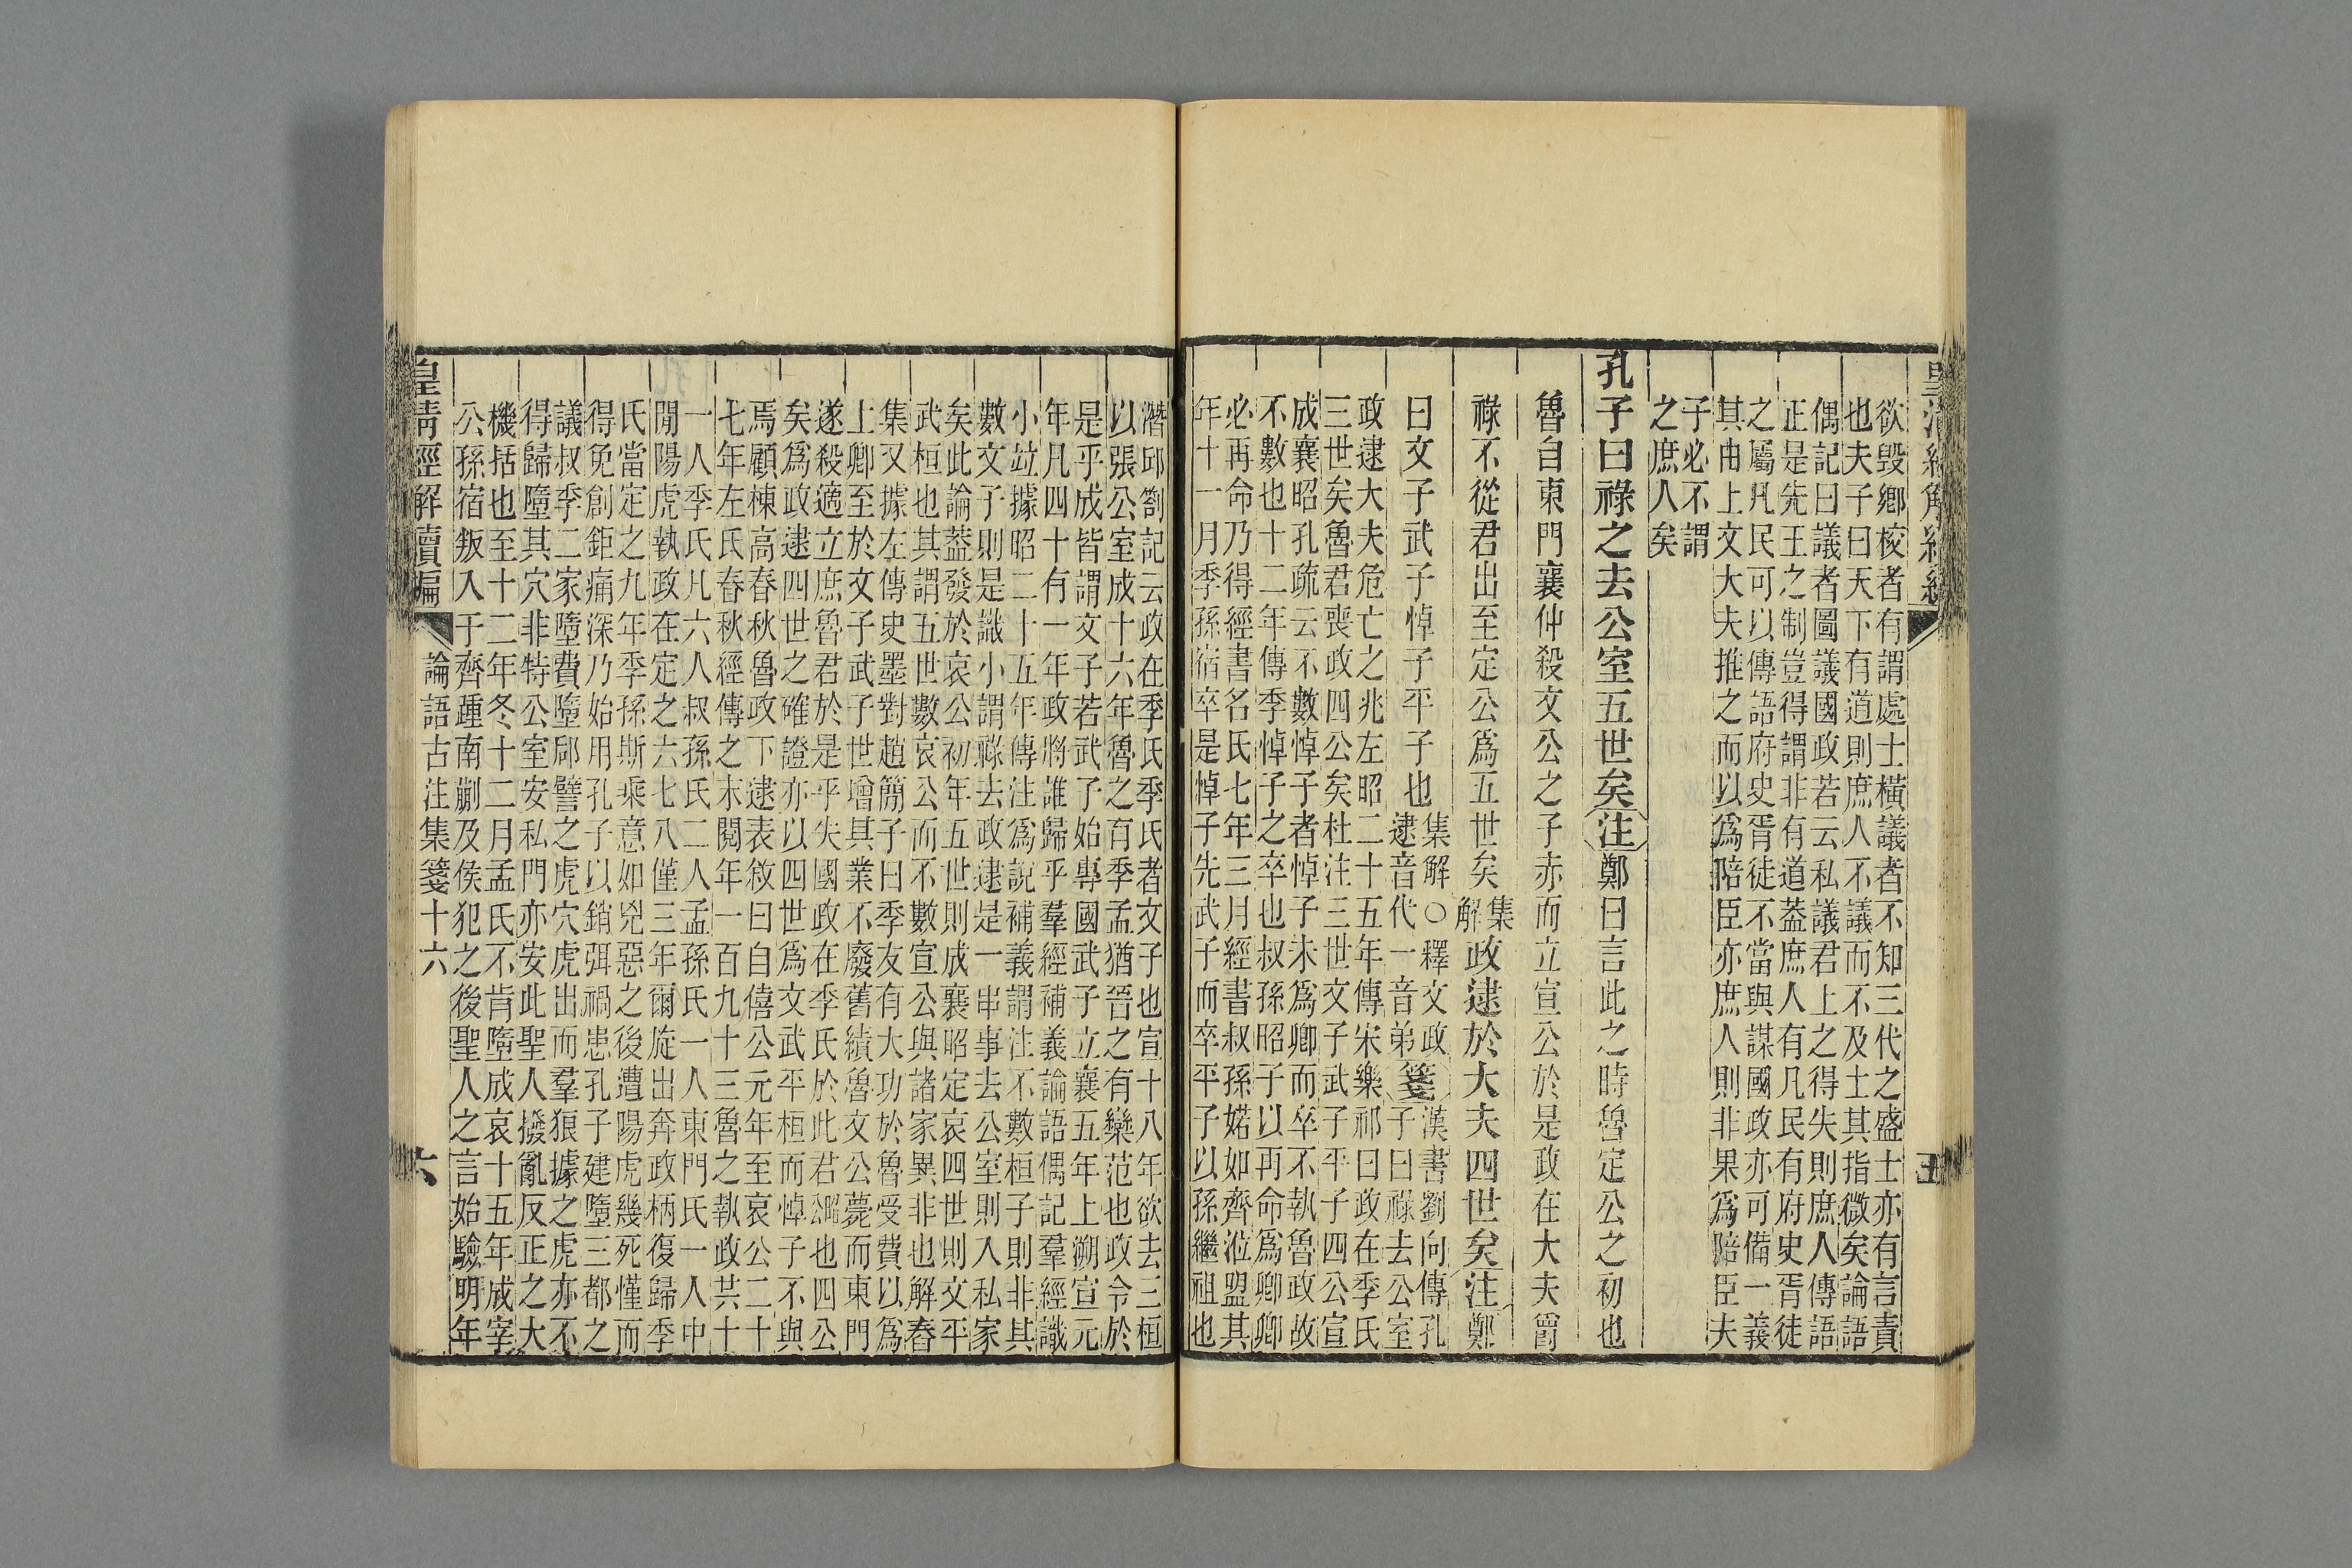 欲毀鄉校者有謂處士橫議者不知三代之盛士亦有言責
也夫子曰天下有道則庶人不議而不及士其指微矣論語
偶記曰議者圖議國政若云私議君上之得失則庶人傳語
正是先王之制豈得謂非有道葢庶人有凡民有府史胥徒
之屬凡民可以傳語府史胥徒不當與謀國政亦可備一義
其由上文大夫推之而以爲陪臣亦庶人則非果爲陪臣夫
子必不謂
之庶人矣
孔子曰祿之去公室五世矣注鄭曰言此之時魯定公之初也
魯自東門襄仲殺文公之子赤而立宣公於是政在大夫爵
祿不從君出至定公爲五世矣集解政逮於大夫四世矣注鄭
曰文子武子悼子平子也集解○釋文政逮音代一音弟箋漢書劉向傳孔子曰祿去公室
政逮大夫危亡之兆左昭二十五年傳宋樂祁曰政在季氏
三世矣魯君喪政四公矣杜注三世文子武子平子四公宣
成襄昭孔疏云不數悼子者悼子未爲卿而卒不執魯政故
不數也十二年傳季悼子之卒也叔孫昭子以再命爲卿卿
必再命乃得經書名氏七年三月經書叔孫婼如齊涖盟其
年十一月季孫宿卒是悼子先武子而卒平子以孫繼祖也
五
潛邱劄記云政在季氏季氏者文子也宣十八年欲去三桓
以張公室成十六年魯之有季孟猶晉之有欒范也政令於
是乎成皆謂文子若武子始專國武子立襄五年上溯宣元
年凡四十有一年政將誰歸乎羣經補義論語偶記羣經識
小竝據昭二十五年傳注爲說補義謂注不數桓子則非其
數文子則是識小謂祿去政逮是一串事去公室則入私家
矣此論葢發於哀公初年五世則成襄昭定哀四世則文平
武桓也其謂五世數哀公而不數宣公與諸家異非也解春
集又據左傳史墨對趙簡子曰季友有大功於魯受費以爲
上卿至於文子武子世增其業不廢舊績魯文公薨而東門
遂殺適立庶魯君於是乎失國政在季氏於此君也四公
矣爲政逮四世之確證亦以四世爲文武平桓而悼子不與
焉顧棟高春秋魯政下逮表敘曰自僖公元年至哀公二十
七年左氏春秋經傳之末閱年一百九十三魯之執政共十
一人季氏凡六人叔孫氏二人孟孫氏一人東門氏一人中
閒陽虎執政在定之六七八僅三年爾旋出奔政柄復歸季
氏當定之九年季孫斯乘意如兇惡之後遭陽虎幾死僅而
得免創鉅痛深乃始用孔子以銷弭禍患孔子建墮三都之
議叔季二家墮費墮郈譬之虎穴虎出而羣狼據之虎亦不
得歸墮其穴非特公室安私門亦安此聖人撥亂反正之大
機括也至十二年冬十二月孟氏不肯墮成哀十五年成宰
公孫宿叛入于齊踵南蒯及侯犯之後聖人之言始驗明年
皇清經解續編
論語古注集箋十六
六